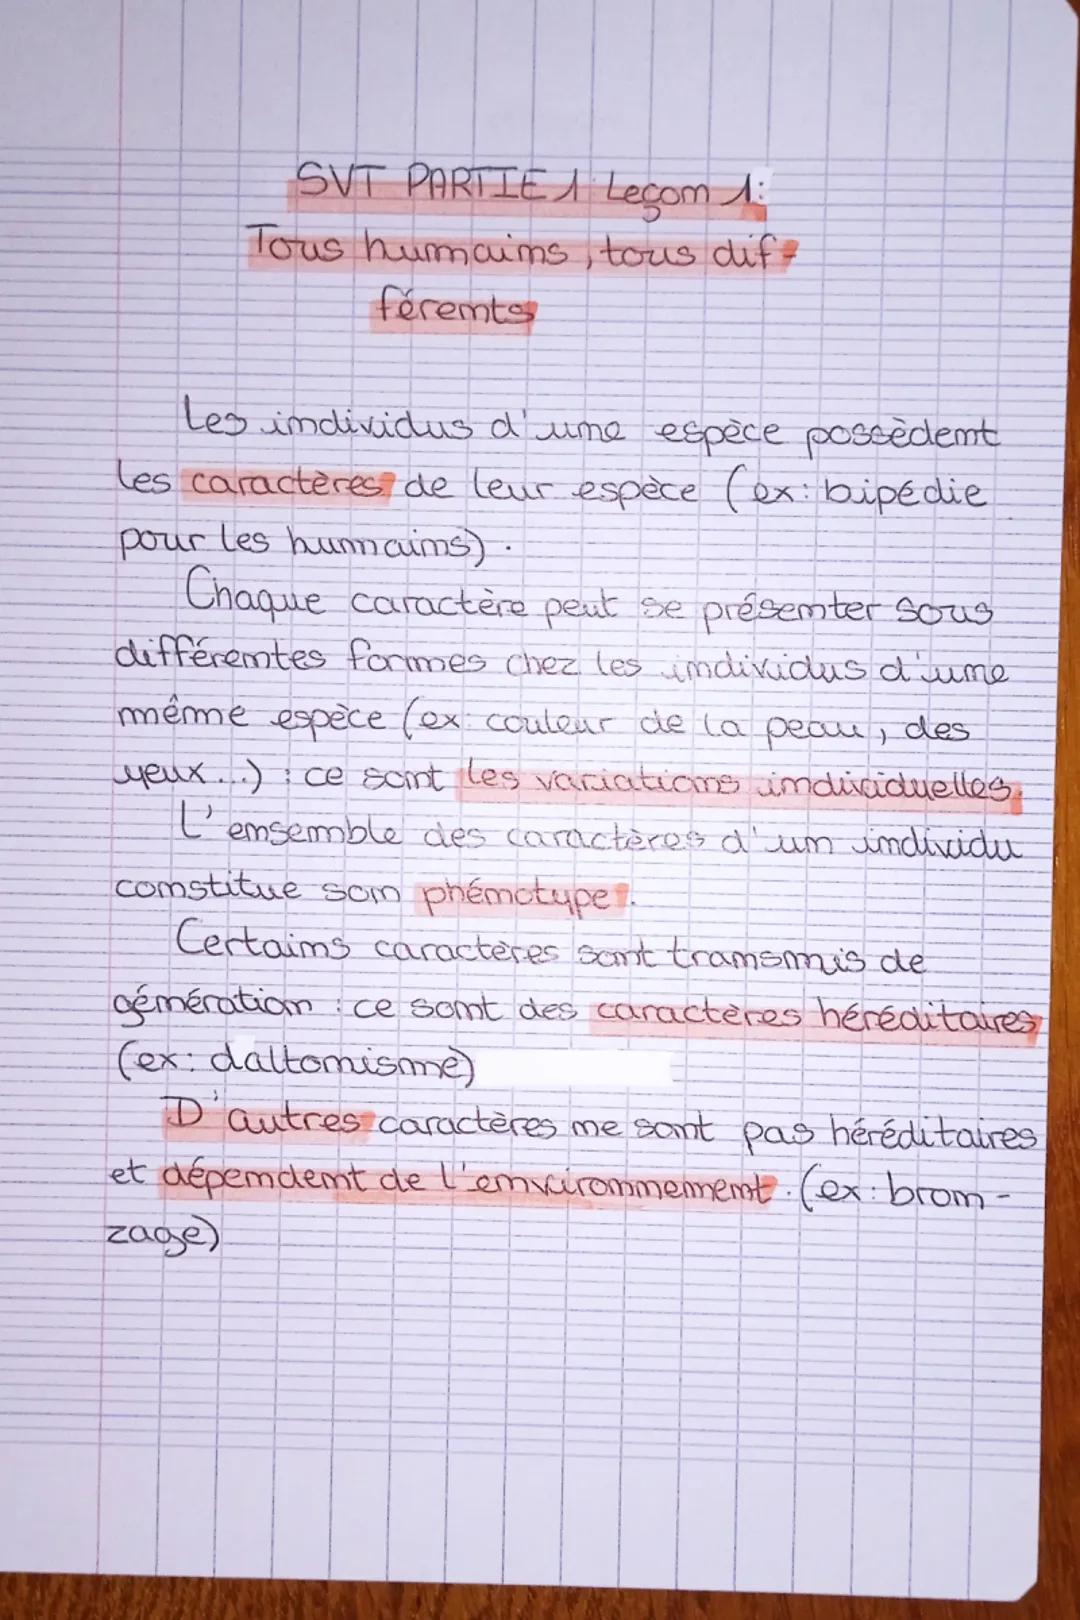 SVT PARTIE 1 Leçon 1:
Tous humains, tous dif-
férents
Les individus d'une espèce possèdent
les caractères de leur espèce (ex: bipédie
pour les humains).
Chaque caractère peut se présenter sous
différentes formes chez les individus d'une
même espèce (ex: couleur de la peau, des
yeux...) : ce sont les variations individuelles.
L'ensemble des caractères d'un individu
constitue son phénotype.
Certains caractères sont transmis de
génération : ce sont des caractères héréditaires
(ex: daltonisme)
D'autres caractères ne sont pas héréditaires
et dépendent de l'environnement. (ex: bron-
zage)